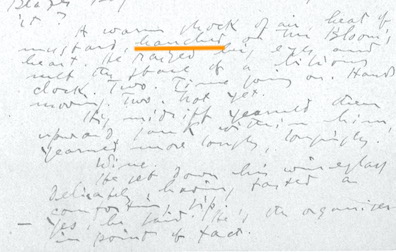 it?
A warm shock of air heat of
mustard hanched on Mr Bloom's
heart. He raised his eyes and
met the stare of a bilious
clock. Two. Time going on. Hands
moving. Two. Not yet.
His midriff yearned then
upward, sank within him,
yearned more longly, longingly.
Wine.
He set down his wineglass
Delicately having tasted a
comforting sip.
— Yes, he said. He's the organiser
in point of fact.